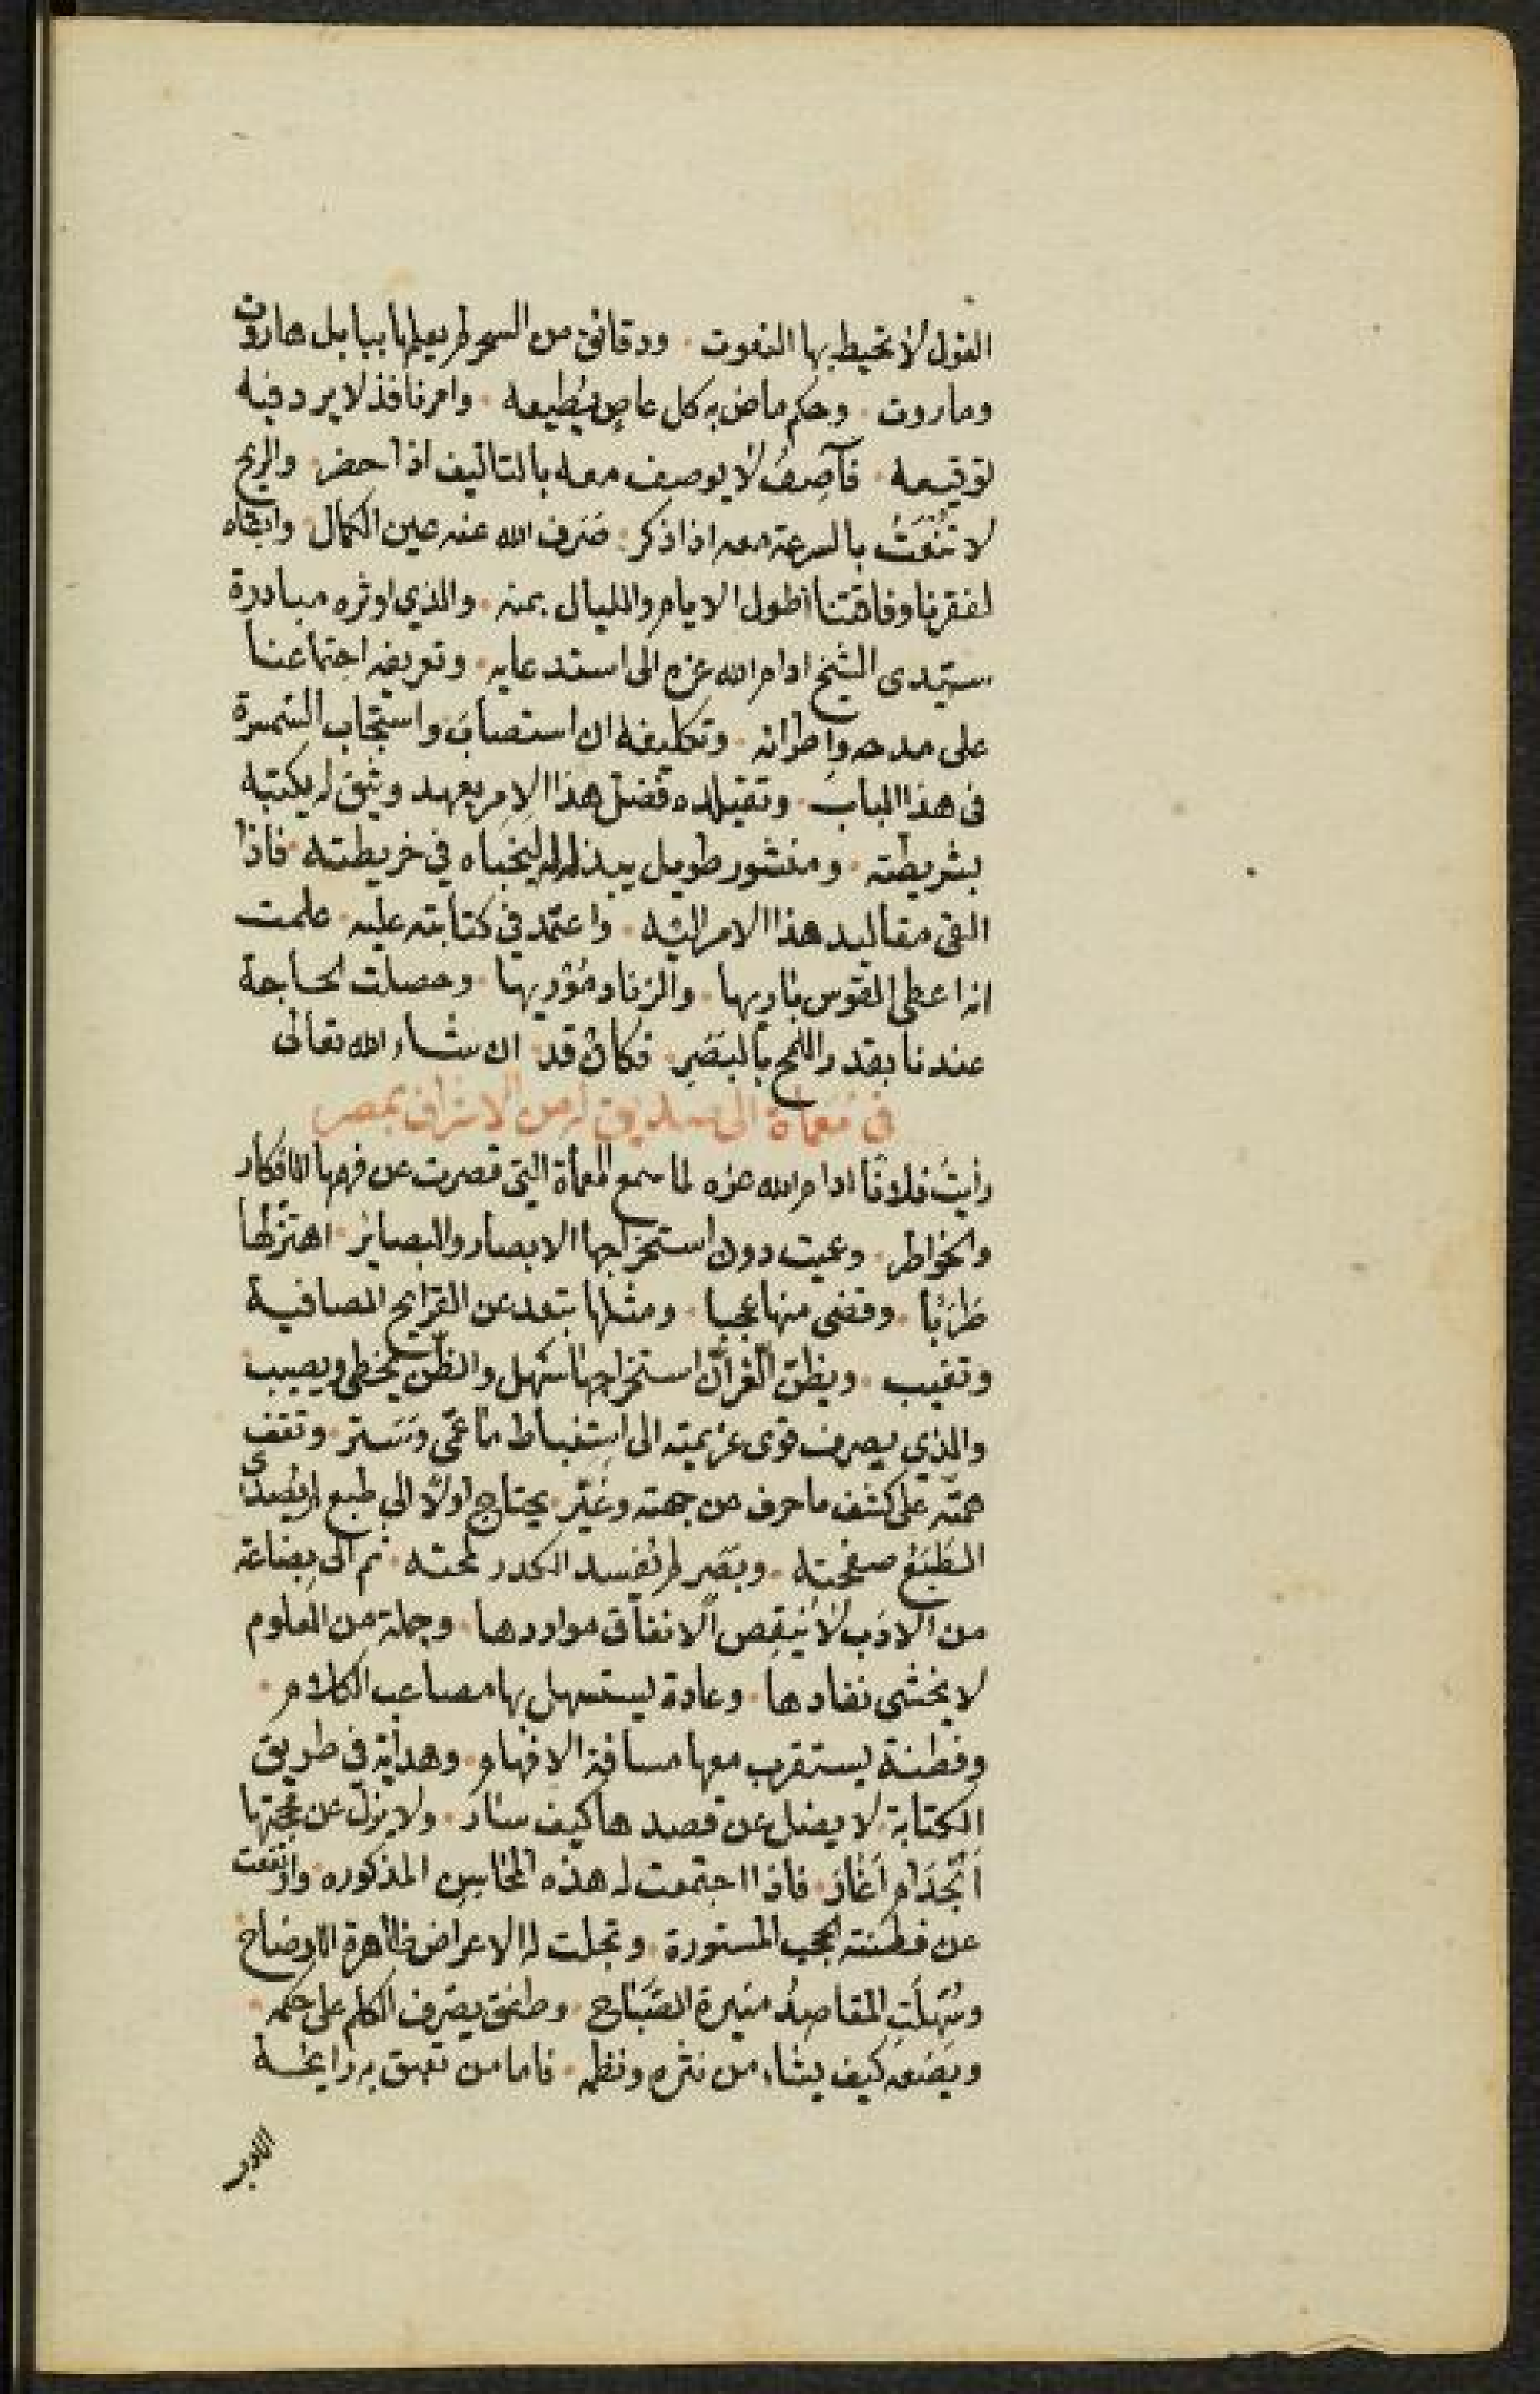 القول لا تحيط بها النعوت . ودقائق من السحر لم يعلمها ببابل هاروت
وماروت . وحكم ماض به كل عاصٍ يُطيعه . وامر نافذ لا يرد فيه
توقيعه . فآصفُ لا يوصف معه بالتاليف اذا حضر . والريح
لا تُنْعَتُ بالسرعة معه اذا ذكر . صَرَف الله عنه عين الكمال . وابقاه
لفقرنا وفاقتنا اطول الايام والليال بمنه . والذي اوثره مبادرة
سيدي الشيخ ادام الله عزه الى استدعايه . وتعريفه اجتماعنا
على مدحه واطرائه . وتكليفه ان استصابَ واستجاب الثمرة
في هذا الباب . وتقليده فضل هذا الامر بعهد وثيق له يكتبه
بشريطته . ومنشور طويل يبذله له ليخباه في خريطته . فاذا
القى مقاليد هذا الامر اليه . واعتمد في كتابته عليه . علمت
انه اعطى القوس باريها . والزناد مُوْريها . وحصلت الحاجة
عندنا بقدر اللمح بالبَصَر . فكانْ قد ان شاء الله تعالى
في مُعماة الى صديق له من الاشراف بمصر
رايتُ فلانًا ادام الله عزه لما سمع المعماة التي قصرت عن فهمها الافكار
والخواطر . وعميت دون استخراجها الابصار والبصائر . اهتز لها
طَرَبًا . وقضى منها عجبا . ومثلها يبعد عن القرايح الصافية
وتغيب . ويظن القرآن استخراجها سَهل والظن يخطي ويصيب
والذي يصرف قوى عزيمته الى استنباط ما عُمّي وسُتر . وتقف
همته على كشف ما حرف عن جهته وغُيّر . يحتاج اولًا الى طبع لم يُصدى
الطَبَعُ صفحته . وبَصَر لم يُفسد الكدر لمحته . ثم الى بضاعة
من الادب لا يُنقِص الانفاق موادها . وجملة من العلوم
لا يخشى نفادها . وعادة يستسهل بها مصاعب الكلام .
وفطنة يستقرب معها مسافة الافهام . وهداية في طريق
الكتابة لا يضل عن قصدها كيف سار . ولا يزل عن محجتها
اَنْجَدَ ام اَغَار . فاذا اجتمعت له هذه المحاسن المذكوره وارتفعت
عن فطنته الحجب المستورة . وتجلت له الاعراض ظاهرة الاوضاح
وسُهلَتِ المقاصدُ منيرة الصَبَاح . وطفق يصرف الكلم على حكمه .
ويصَنعه كيف يشاء من نثره ونظمه . فاما من تعبق به رايحة
الادب